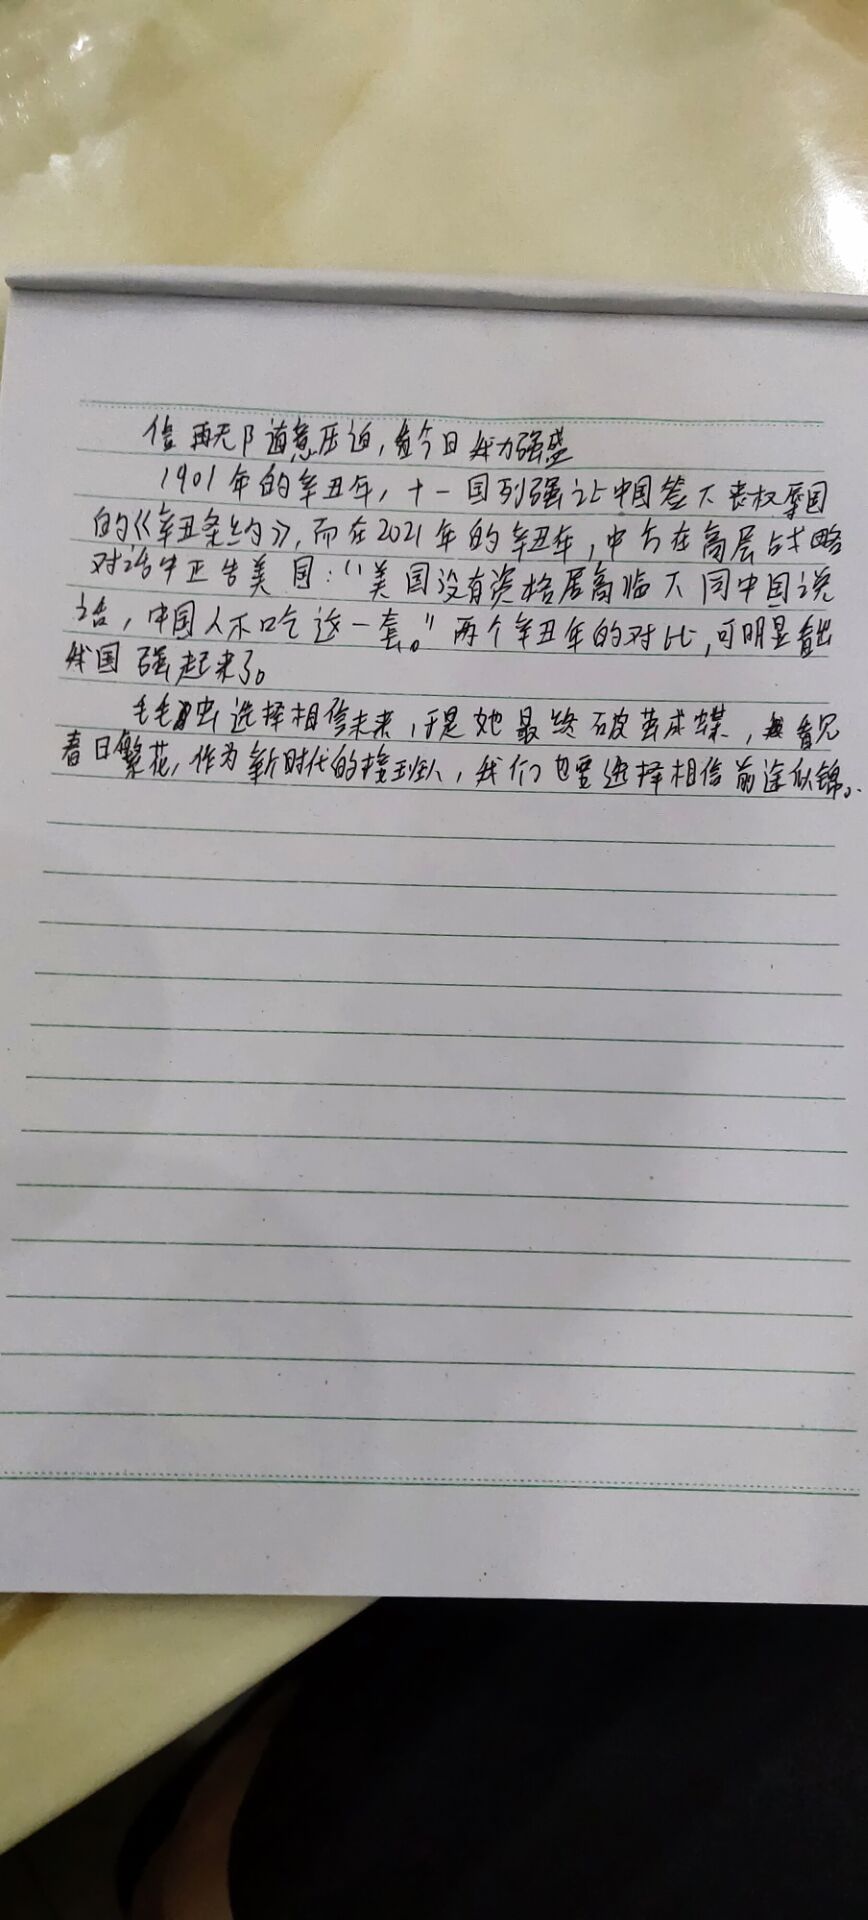 信再无阝道急压迫,看今日我力强盛
1901年的辛丑年,十一国列强让中国签下丧权辱国
的《辛丑条约》,而在2021年的辛丑年,中方在高层战略
对话中正告美国:“美国没有资格居高临下同中国说
话,中国人不吃这一套。”两个辛丑年的对比,可明显看出
我国强起来了。
毛毛虫选择相信未来,于是她最终破茧成蝶,看见
春日繁花,作为新时代的接班人,我们也要选择相信前途似锦。